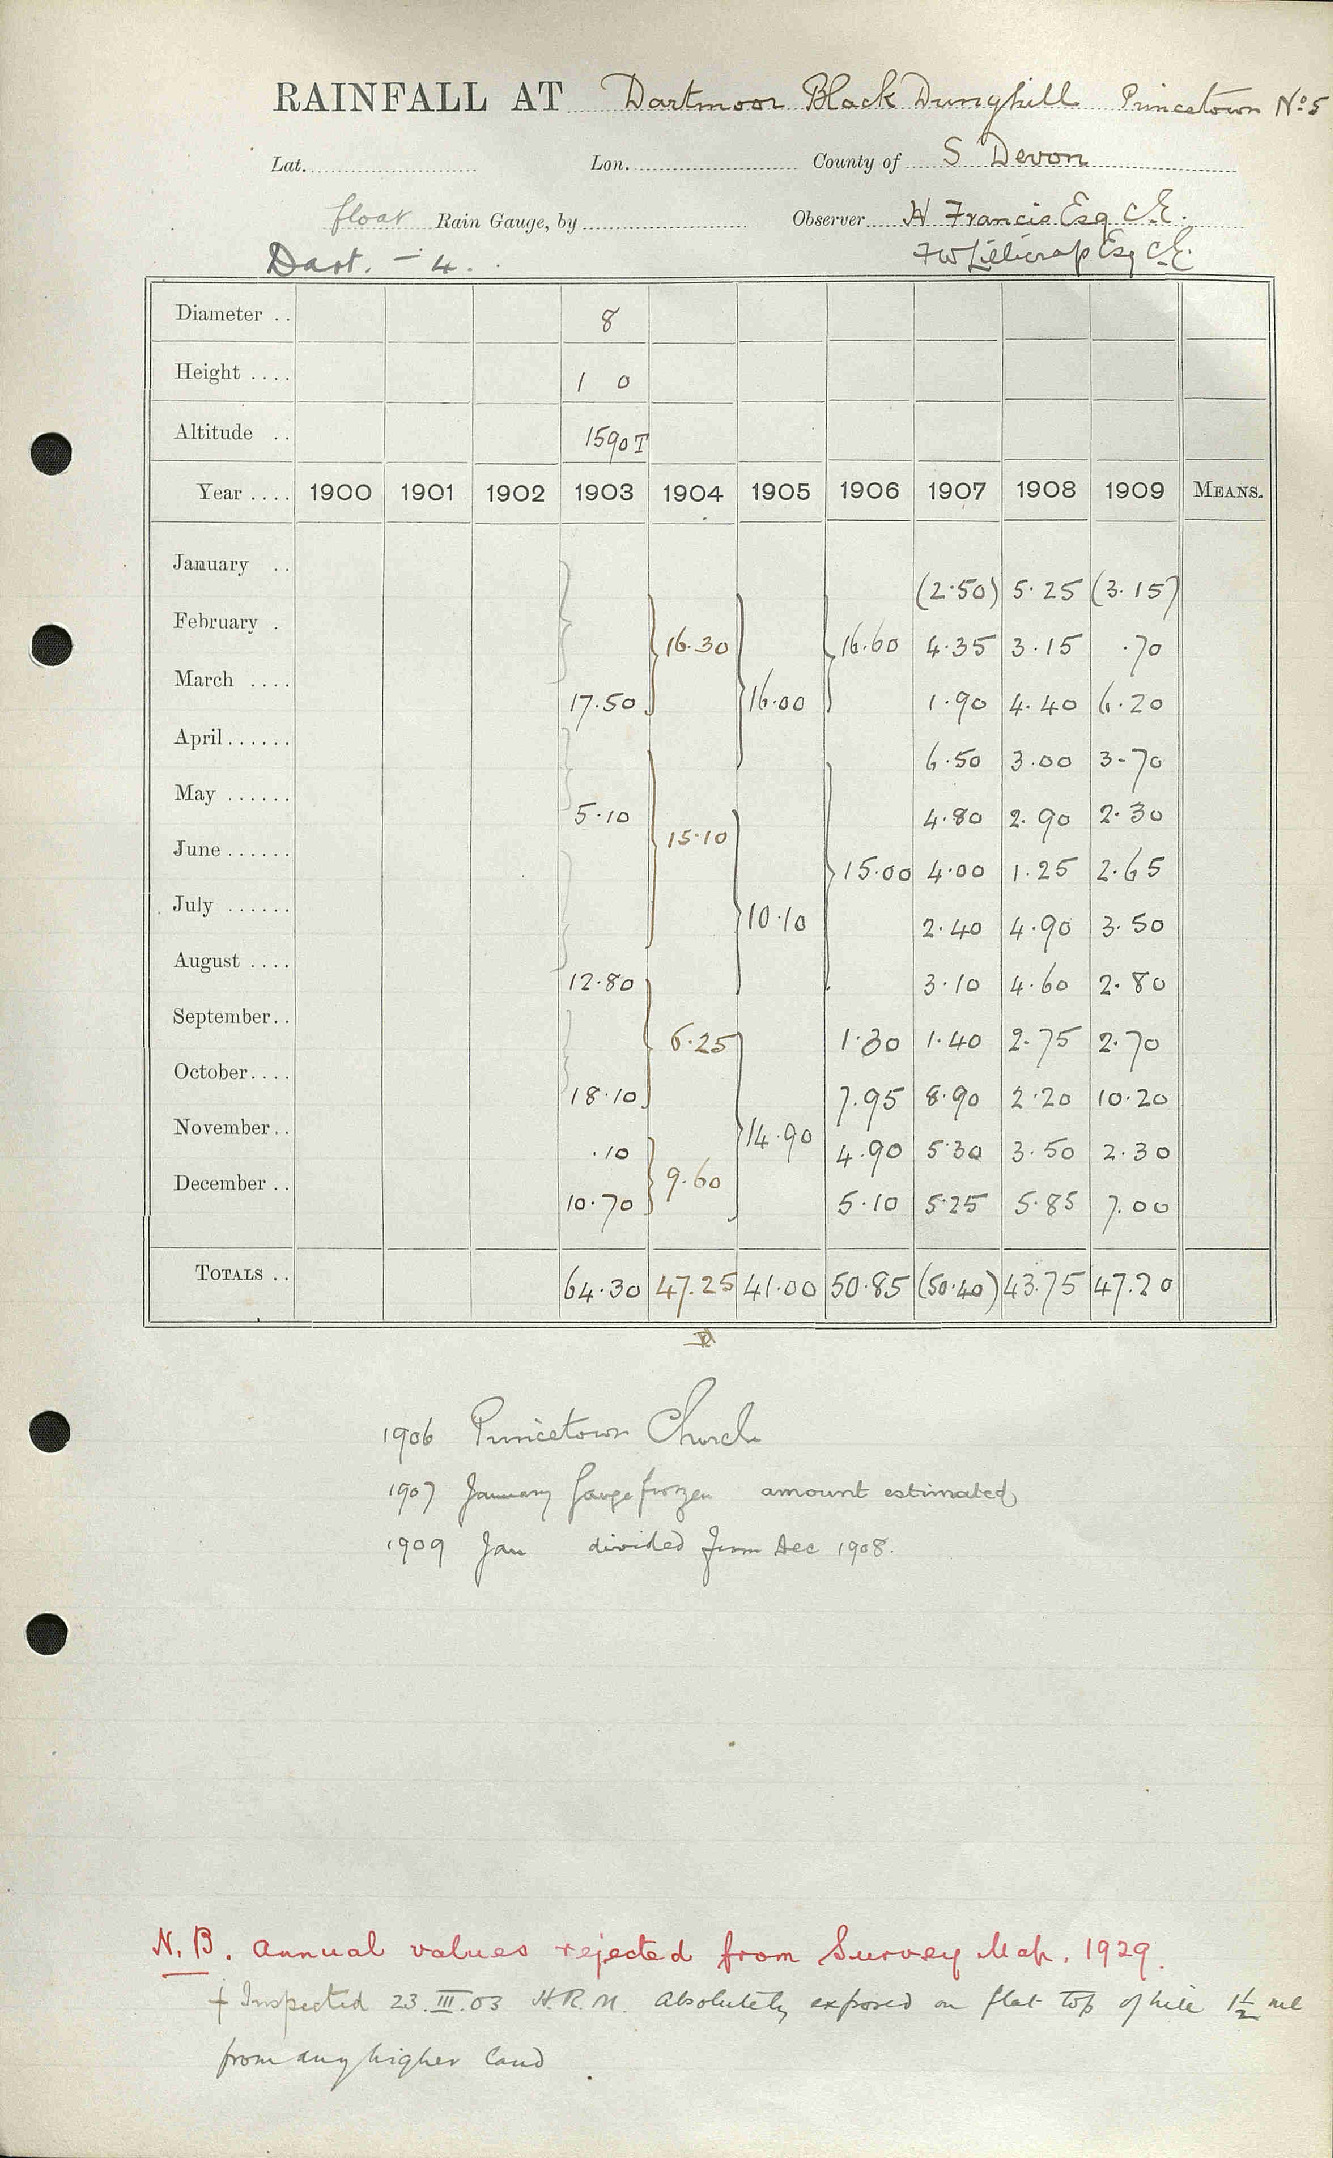 RAINFALL AT Dartmoor Black Dunghill Princetown No 5
Lat. Lon. County of S Devon
float Rain Gauge, by Observer H Francis Esq C.E.
Dart. - 4. F W Lillicrap Esq C.E.
Diameter .. 8
Height .... 1 0
Altitude .. 1590 T
Year .... 1900 1901 1902 1903 1904 1905 1906 1907 1908 1909 MEANS.
January .. (2.50) 5.25 (3.15)
February . 16.30 16.60 4.35 3.15 .70
March .... 17.50 16.00 1.90 4.40 6.20
April...... 6.50 3.00 3.70
May ...... 5.10 15.10 4.80 2.90 2.30
June ...... 15.00 4.00 1.25 2.65
July ...... 10.10 2.40 4.90 3.50
August .... 12.80 3.10 4.60 2.80
September.. 6.25 1.30 1.40 2.75 2.70
October.... 18.10 7.95 8.90 2.20 10.20
November.. .10 14.90 4.90 5.30 3.50 2.30
December .. 10.70 9.60 5.10 5.25 5.85 7.00
TOTALS .. 64.30 47.25 41.00 50.85 (50.40) 43.75 47.20
1906 Princetown Church
1907 January Gauge frozen amount estimated
1909 Jan divided from Dec 1908.
N.B. Annual values rejected from Survey Map. 1929.
† Inspected 23.III.03 H.R.M. Absolutely exposed on flat top of hill 1½ ml
from any higher land